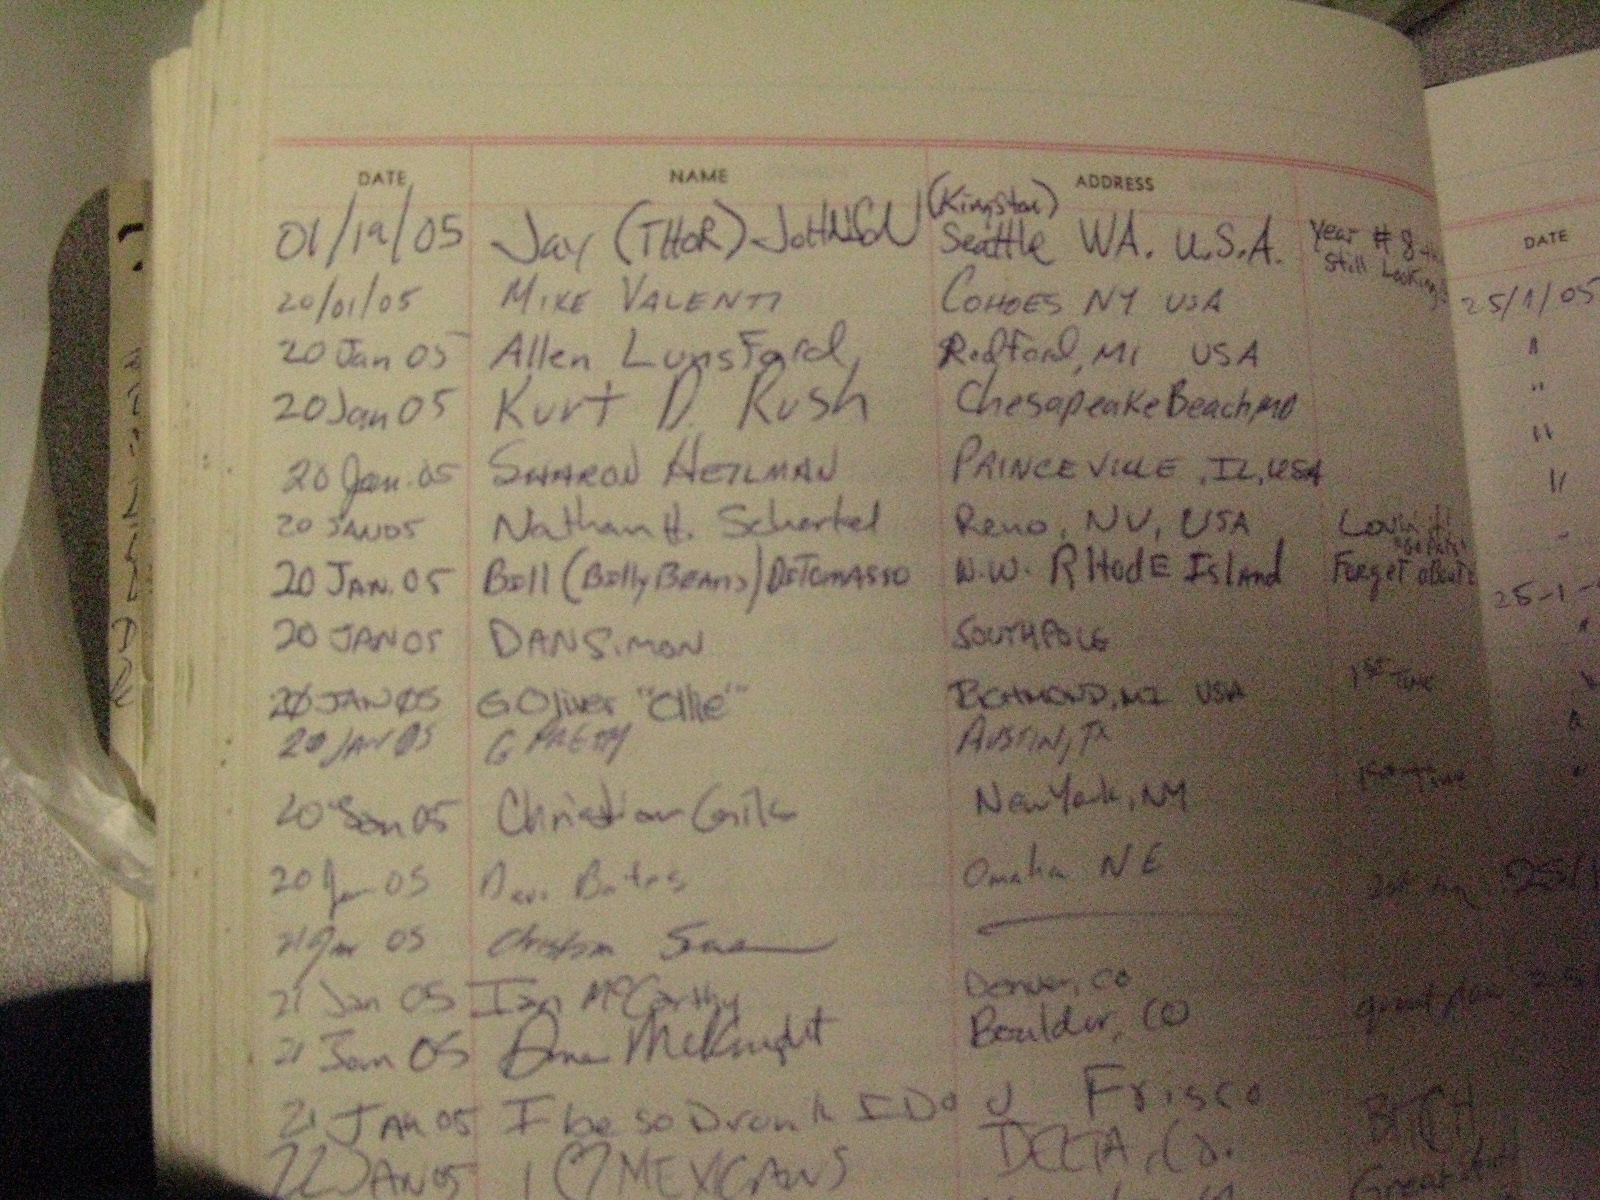 DATE NAME ADDRESS
01/19/05 Jay (THOR) JOHNSON (Kingston) Seattle WA. U.S.A. Year #8 +
Still Looking
20/01/05 MIKE VALENTI COHOES NY USA
20 Jan 05 Allen Lunsford, Redford, MI USA
20 Jan 05 Kurt D. Rush Chesapeake Beach, MD
20 Jan. 05 SHARON HEILMAN PRINCEVILLE, IL, USA
20 JAN 05 Nathan H. Scherkel Reno, NV, USA
20 JAN. 05 Bill (Billy Beans) DETOMASSO W.W. RHodE Island Forget about
20 JAN 05 DAN SIMON SOUTH POLE
20 JAN 05 G Oliver "Ollie" RICHMOND, MI USA 1ST TIME
20 JAN 05 G PRETTY AUSTIN, TX
20 Jan 05 Christian New York, NY 1st Time
20 Jan 05 Bates Omaha NE
21 Jan 05 Christian
21 Jan 05 Ian McCarthy Denver, CO great
21 Jan 05 McKnight Boulder, CO
21 JAN 05 I be so Drunk I Do U Frisco BITCH
22 JAN 05 I ♡ MEXICANS DELTA, CO. Great
DATE
25/1/05
"
"
"
"
25-1-
"
25/1